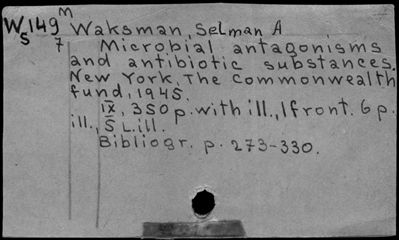 M
Ws149 Waksman, Selman A
7 Microbial antagonisms
and antibiotic substances.
New York, The Commonwealth
fund, 1945.
IX, 350 p. with ill., 1 front. 6 p.
ill., 5 L. ill.
Bibliogr. p. 273-330.